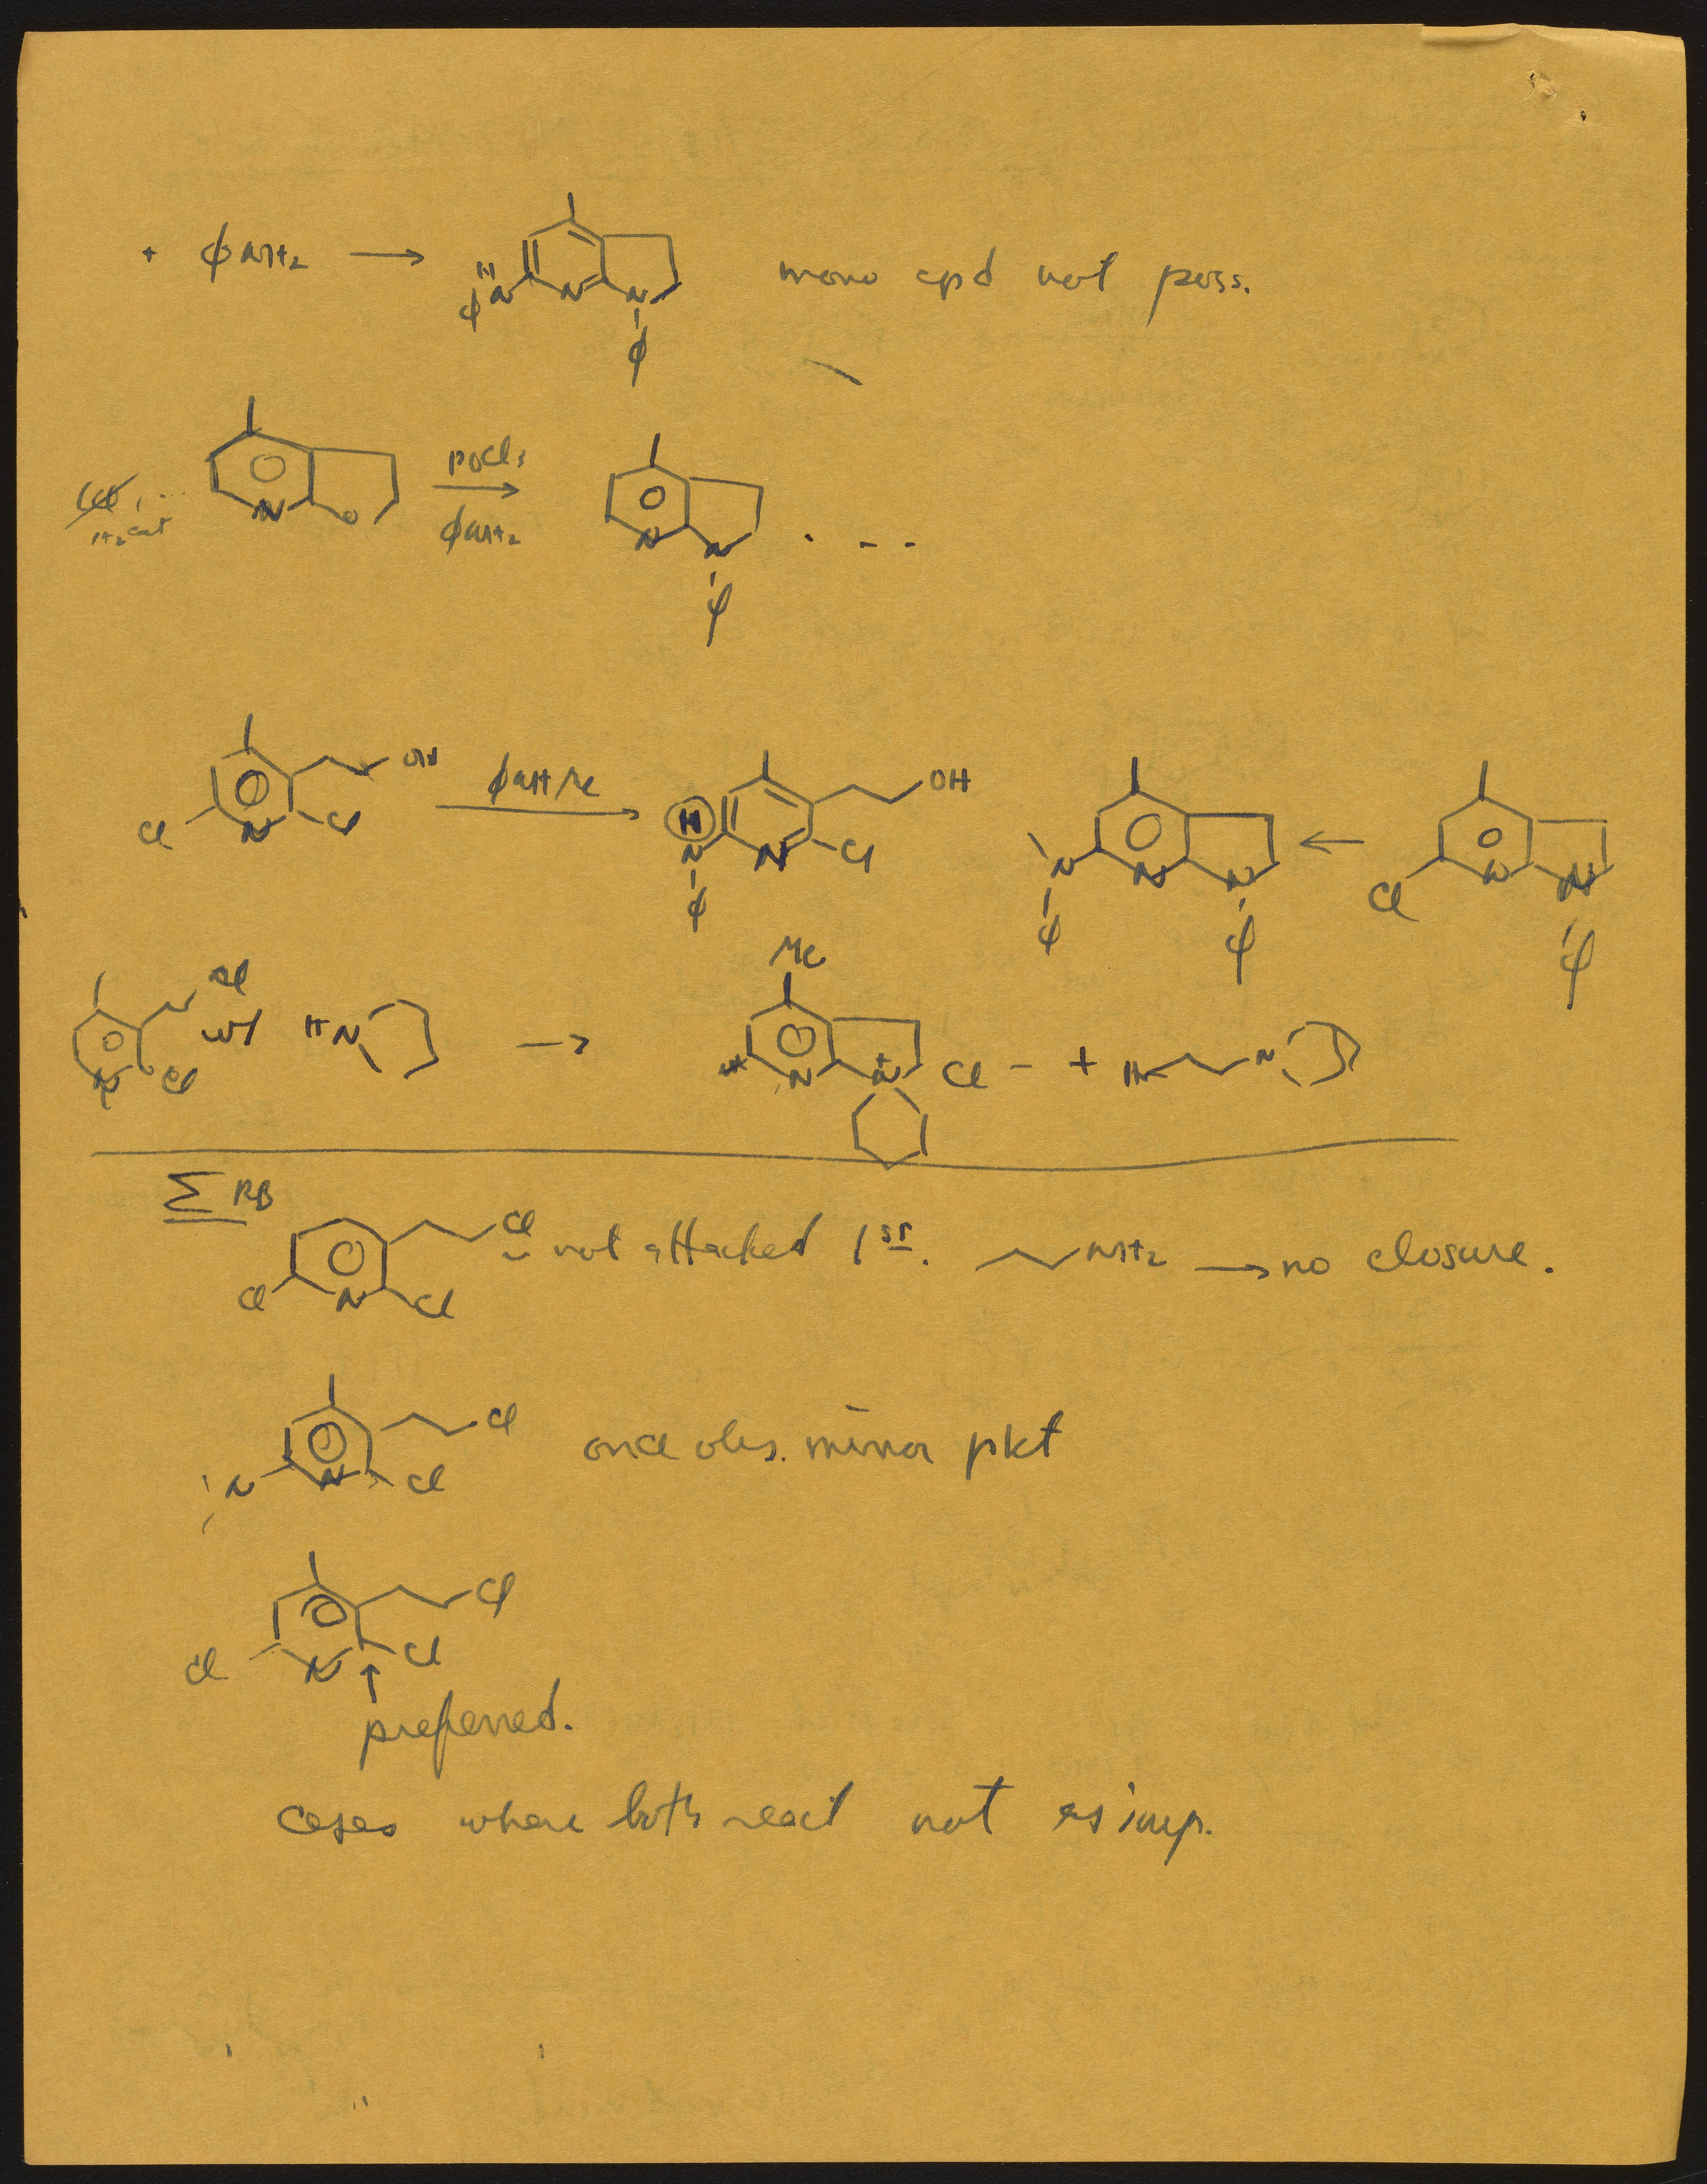 + ϕNH2 → H N ϕ N N ϕ mono cpd not poss.
N O POCl3 → ϕNH2 N N ϕ . - -
H2 cat
Cl N Cl OH ϕNHMe → H N ϕ N Cl OH N ϕ N N ϕ ← Cl N N ϕ
N Cl Cl w/ HN → Me N N+ Cl- + N
Σ RB
Cl N Cl Cl - not attacked 1st. NH2 → no closure.
N N Cl Cl once obs. minor pkt
Cl N Cl Cl
↑
preferred.
Cases where both react not as imp.